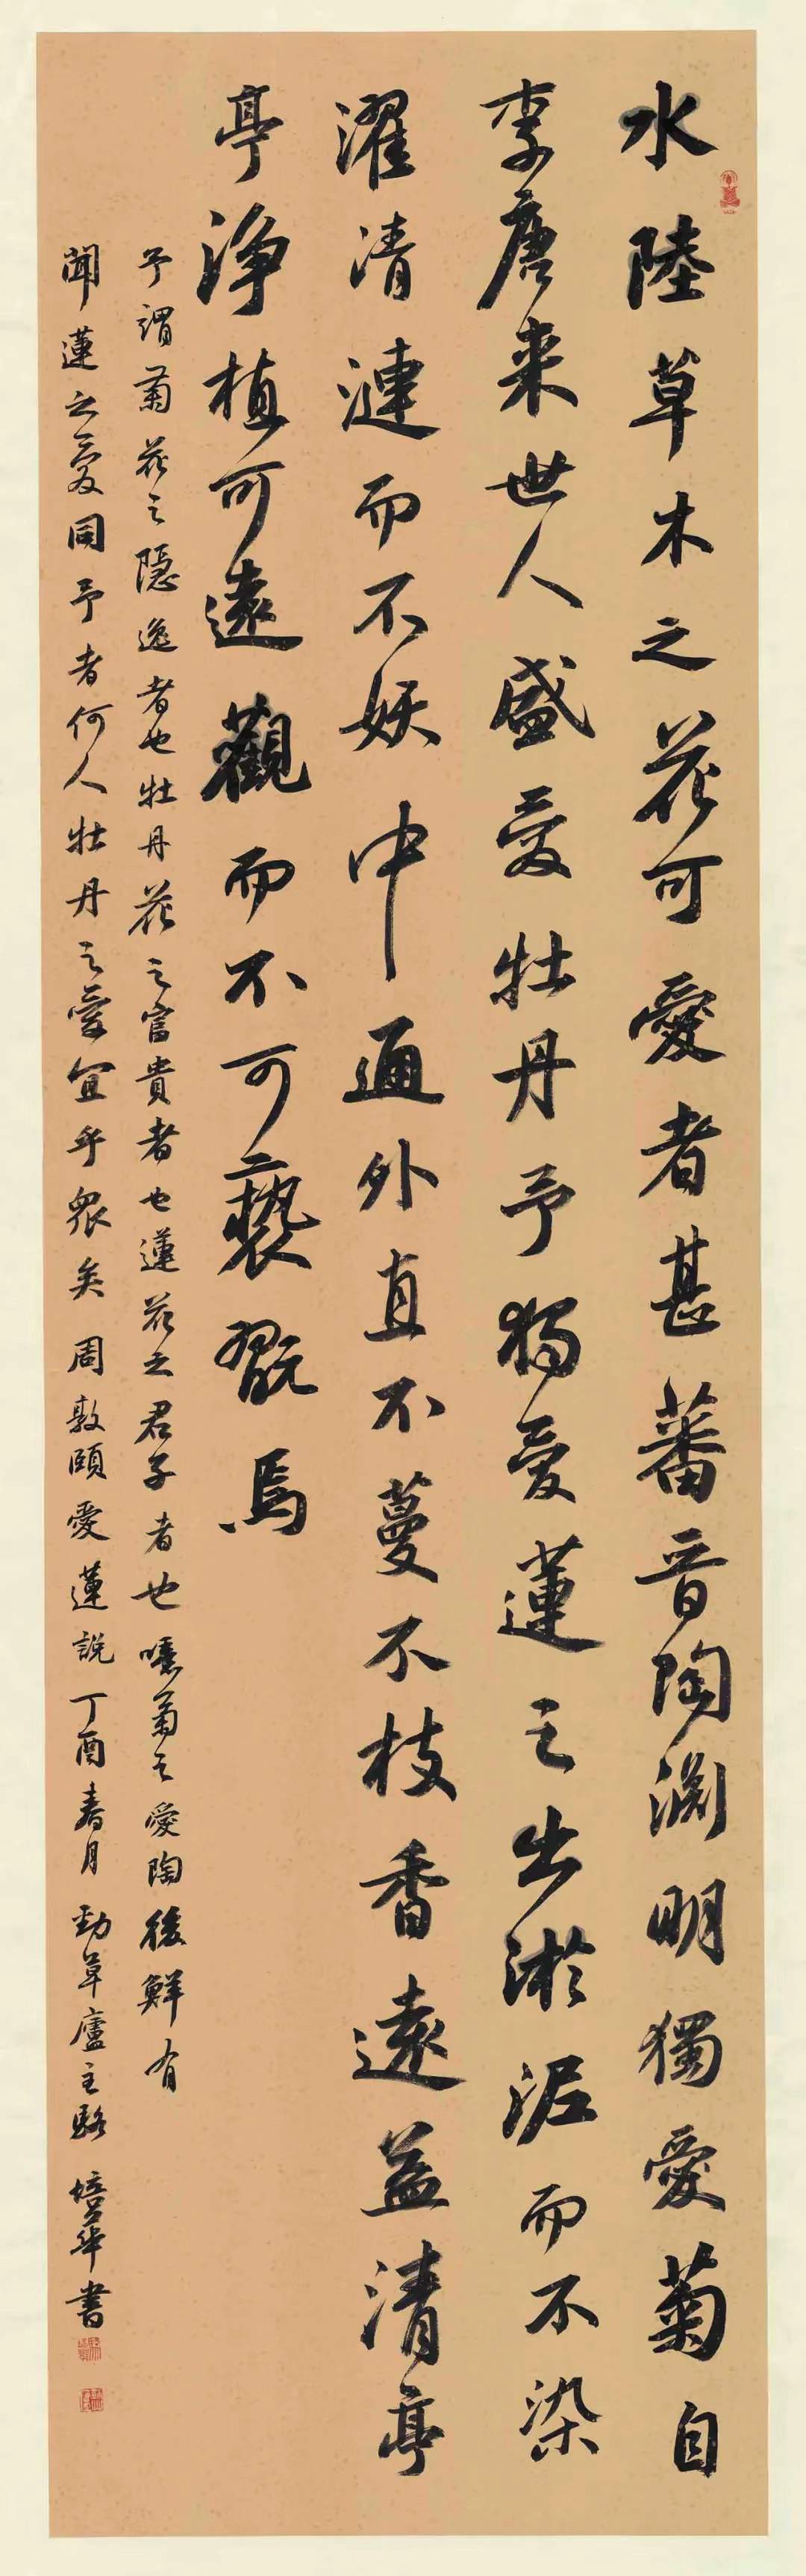 水陸草木之花可愛者甚蕃晋陶渊明獨愛菊自
李唐来世人盛愛牡丹予独愛蓮之出淤泥而不染
濯清漣而不妖中通外直不蔓不枝香遠益清亭
亭淨植可遠觀而不可褻翫焉
予謂菊花之隐逸者也牡丹花之富貴者也蓮花之君子者也噫菊之愛陶後鮮有
聞蓮之愛同予者何人牡丹之愛宜乎衆矣周敦頤愛蓮説丁酉春月勁草廬主駱培華書